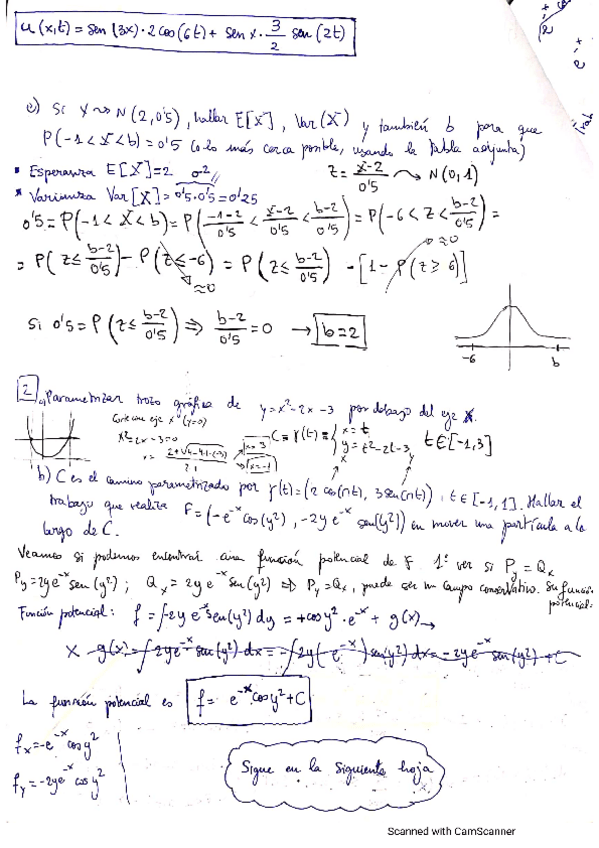 u(x,t) = sen(3x)·2cos(6t) + sen x · 3/2 sen(2t)
e) Si X ~> N(2, 0'5), hallar E[X], Var(X) y también b para que
P(-1<X<b)=0'5 (o lo más cerca posible, usando la tabla adjunta)
• Esperanza E[X]=2 σ²
Z = (x-2)/0'5 → N(0,1)
* Varianza Var[X] = 0'5·0'5 = 0'25
0'5 = P(-1<X<b) = P((-1-2)/0'5 < (x-2)/0'5 < (b-2)/0'5) = P(-6<Z<(b-2)/0'5) =
= P(Z ≤ (b-2)/0'5) - P(Z ≤ -6) = P(Z ≤ (b-2)/0'5) - [1 - P(Z ≥ 6)]
≈0
≈0
Si 0'5 = P(Z ≤ (b-2)/0'5) ⇒ (b-2)/0'5 = 0 → b=2
-6 b
2 a) Parametrizar trozo gráfica de y=x²-2x-3 por debajo del eje X.
Corte con eje x (y=0)
x²-2x-3=0
x = (2±√(4-4·1·(-3)))/(2·1)
x=3
x=-1
C ≡ γ(t) ≡ { x=t
y=t²-2t-3
t∈[-1,3]
b) C es el camino parametrizado por γ(t) = (2cos(πt), 3sen(πt)), t∈[-1,1]. Hallar el
trabajo que realiza F=(-e^-x cos(y²), -2y e^-x sen(y²)) en mover una partícula a lo
largo de C.
Veamos si podemos encontrar una función potencial de F. 1º ver si Py = Qx
Py = 2ye^-x sen(y²); Qx = 2ye^-x sen(y²) ⇒ Py=Qx, puede ser un campo conservativo. Su función
potencial:
Función potencial: f = ∫-2y e^-x sen(y²) dy = +cosy²·e^-x + g(x) →
X g(x) = ∫2ye^-x sen(y²) dx = -∫2y(-e^-x) sen(y²) dx = -2ye^-x sen(y²) + C
La función potencial es f = e^-x cosy² + C
fx = -e^-x cosy²
fy = -2ye^-x cosy²
Sigue en la siguiente hoja
Scanned with CamScanner